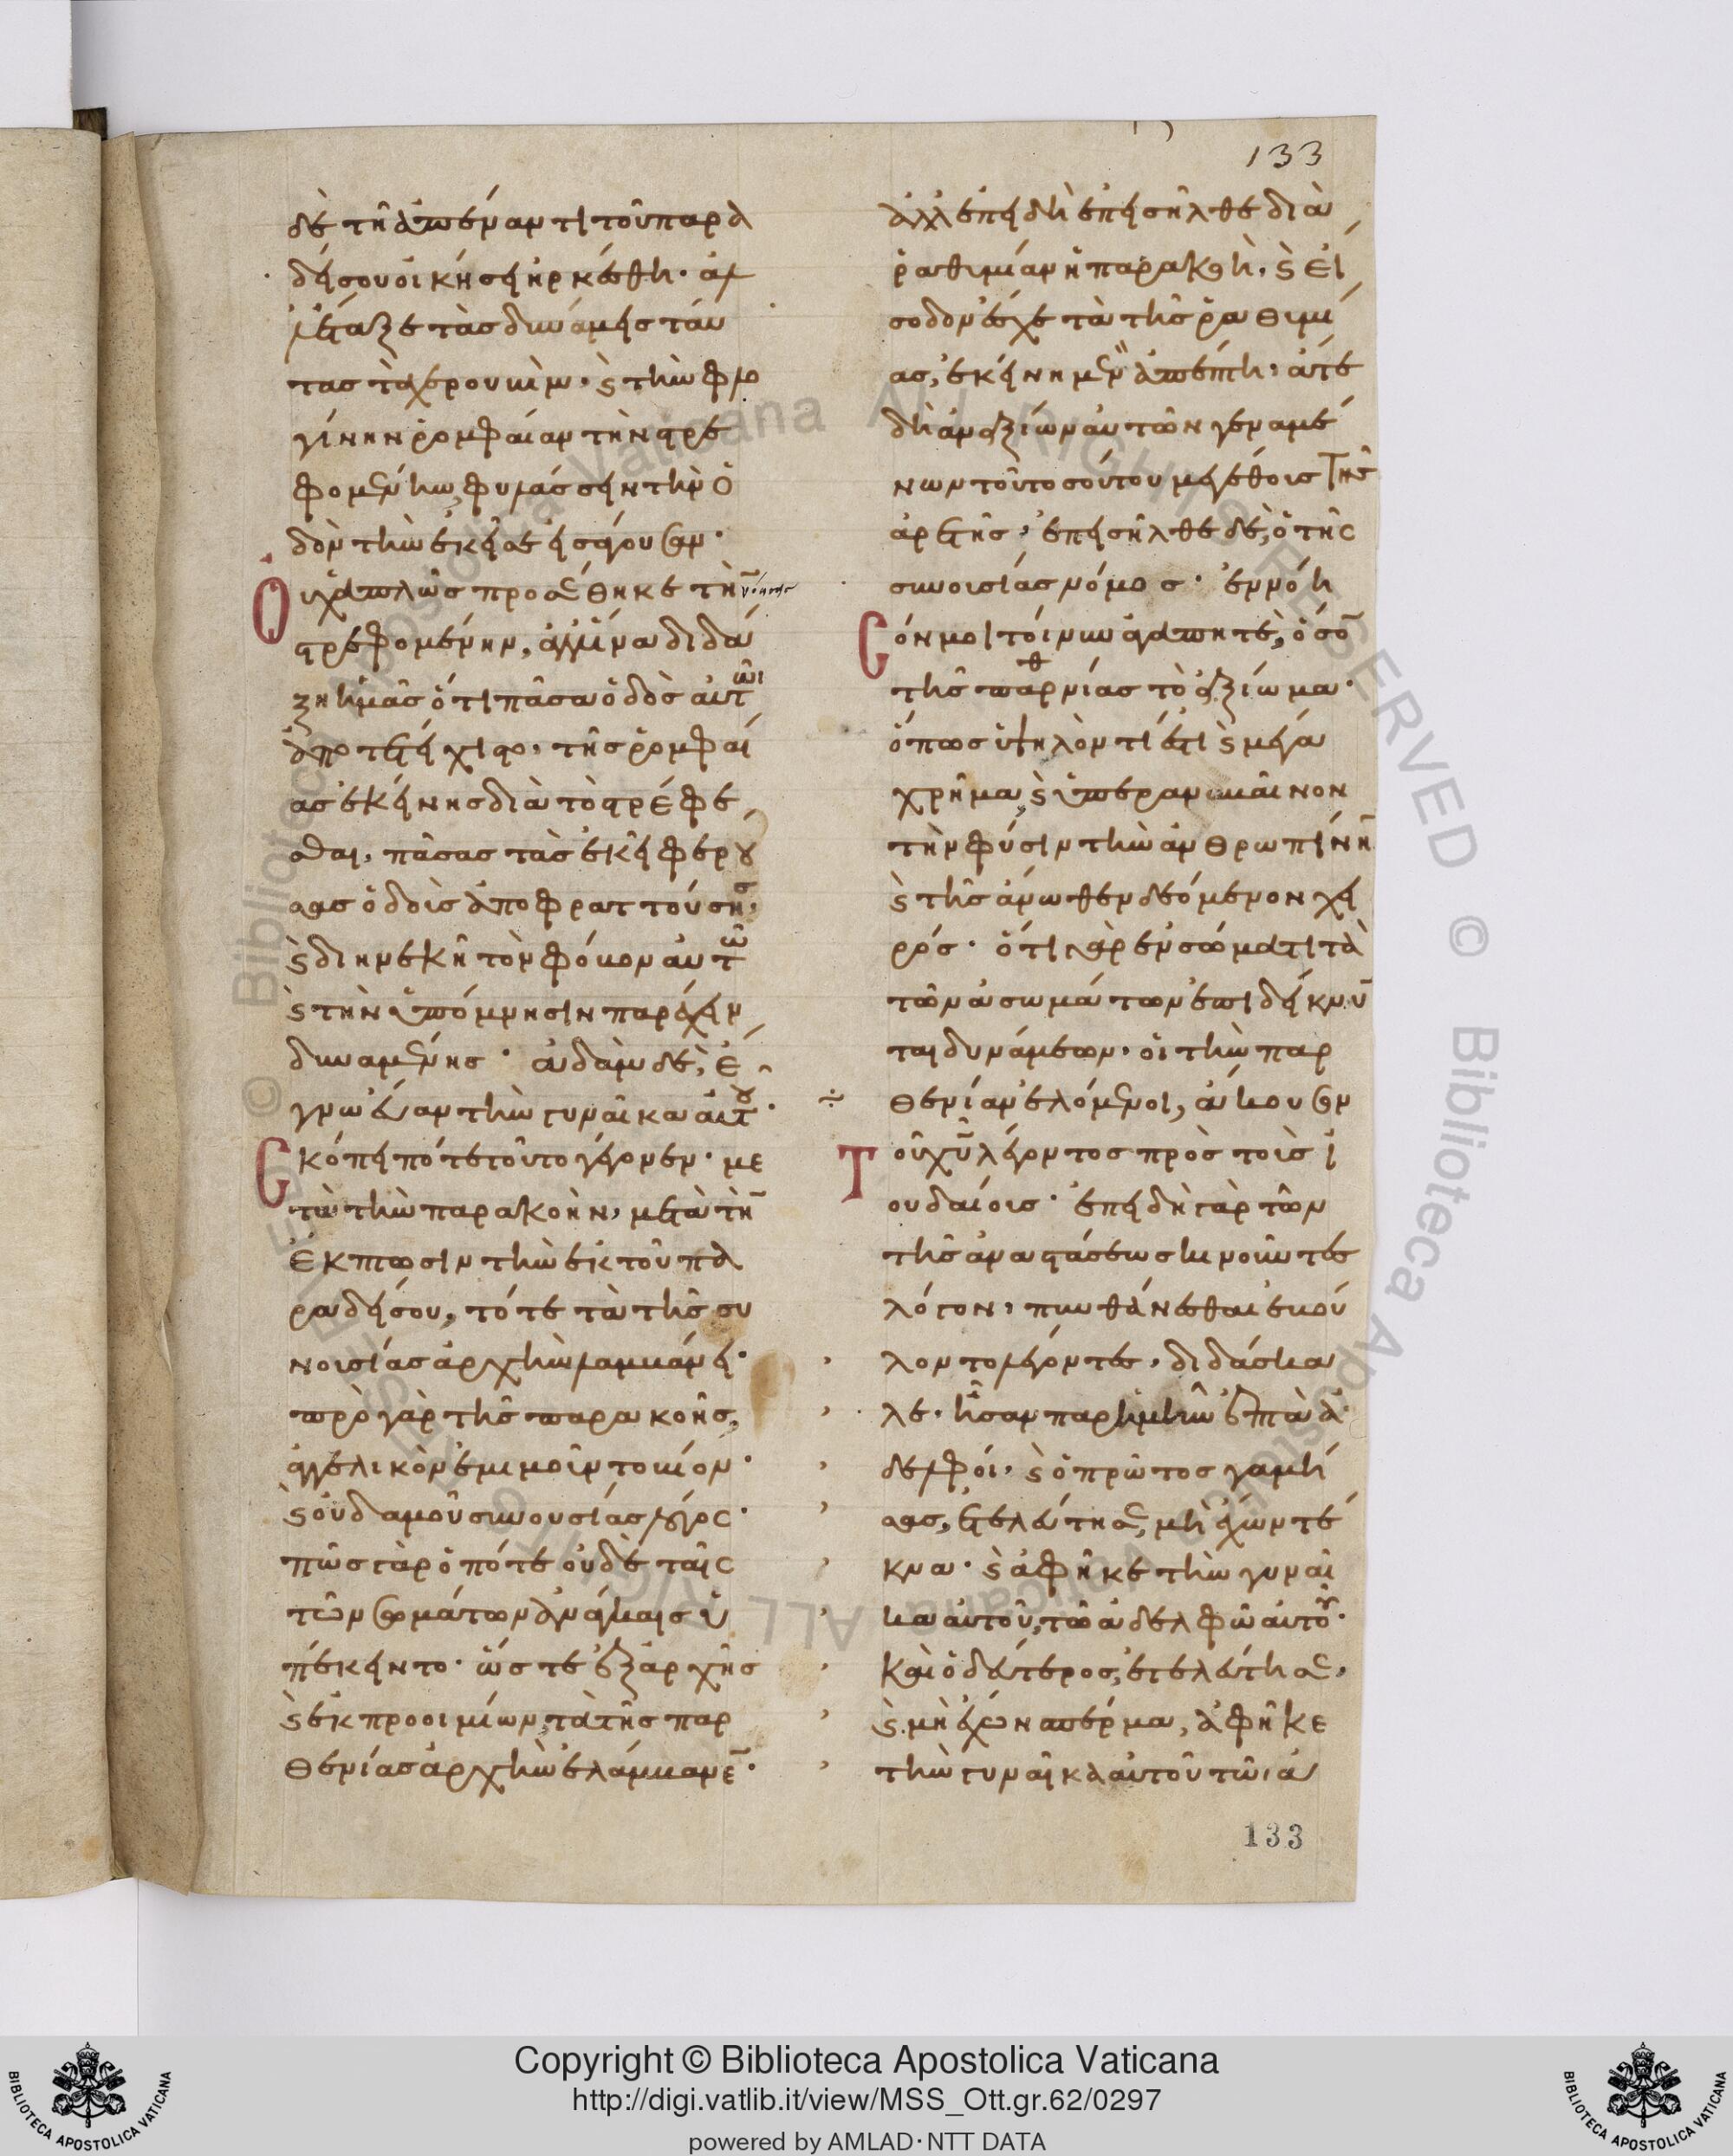 133
δὲ τῆ ἀπέναντι τοῦ παρα
δείσου οἰκήσει ἠρκέσθη· ἀλ
λ' ἔταξε τὰς δυνάμεις ταύ
τας τὰ χερουβὶμ· καὶ τὴν φλο
γίνην ῥομφαίαν τὴν στρε
φομένην φυλάσσειν τὴν ὁ
δὸν τὴν ἐκεῖσε εἰσάγουσαν·
Οὐχ ἁπλῶς προσέθηκε τὴν
στρεφομένην, ἀλλ' ἵνα διδά
ξη ἡμᾶς ὅτι πᾶσα ὁδὸς αὐτῶι
ἀποτετείχισται, τῆς ῥομφαί
ας ἐκείνης διὰ τὸ στρέφε
σθαι, πάσας τὰς ἐκεῖ φερού
σας ὁδοὺς ἀποφραττούσης,
καὶ διηνεκῆ τὸν φόβον αὐτῶ
καὶ τὴν ὑπόμνησιν παρέχειν
δυναμένης· ἀδὰμ δὲ, ἔ
γνω εὔαν τὴν γυναῖκα αὐτοῦ·
Σκόπει πότε τοῦτο γέγονεν· με
τὰ τὴν παρακοὴν, μετὰ τὴν
ἔκπτωσιν τὴν ἐκ τοῦ πα
ραδείσου, τότε τὰ τῆς συ
νουσίας ἀρχὴν λαμβάνει·
πρὸ γὰρ τῆς παρακοῆς,
ἀγγελικὸν ἐμιμοῦντο βίον·
καὶ οὐδαμοῦ συνουσίας λόγος·
πῶς γὰρ ὁπότε οὐδὲ ταῖς
τῶν σωμάτων ἀνάγκαις ὑ
πέκειντο· ὥστε ἐξ ἀρχῆς
καὶ ἐκ προοιμίων, τὰ τῆς παρ
θενίας ἀρχὴν ἐλάμβανεν·
ἀλλ' ἐπειδὴ ἐπεισῆλθε διὰ
ῥαθυμίαν ἡ παρακοὴ, καὶ εἴ
σοδον ἔσχε τὰ τῆς ῥαθυμί
ας, ἐκείνη μὲν ἀπέπτη, ἅτε
δὴ ἀναξίων αὐτῶν γεναμέ
νων τοῦ τοσούτου μεγέθους τῆς
ἀρετῆς, ἐπεισῆλθε δὲ, ὁ τῆς
συνουσίας νόμος· ἐννόη
σόν μοι τοίνυν ἀγαπητὲ, ὅσον
τῆς παρθενίας τὸ ἀξίωμα·
ὅπως ὑψηλόν τί ἐστι καὶ μέγα
χρῆμα, καὶ ὑπεραναβαῖνον
τὴν φύσιν τὴν ἀνθρωπίνην
καὶ τῆς ἄνωθεν δεόμενον χει
ρός· ὅτι γὰρ ἐν σώματι τὰ
τῶν ἀσωμάτων ἐπιδείκνυν
ται δυνάμεων, οἱ τὴν παρ
θενίαν ἑλόμενοι, ἄκουσον
Τοῦ χυ λέγοντος πρὸς τοὺς ἰ
ουδαίους· ἐπειδὴ γὰρ τὸν
τῆς ἀναστάσεως κινοῦντες
λόγον, πυνθάνεσθαι ἐβού
λοντο λέγοντες, διδάσκα
λε· ἦσαν παρ' ἡμῖν ἑπτὰ ἀ
δελφοί, καὶ ὁ πρῶτος γαμή
σας, ἐτελεύτησε, μὴ ἔχων τέ
κνα· καὶ ἀφῆκε τὴν γυναῖ
κα αὐτοῦ, τῶ ἀδελφῶ αὐτοῦ·
καὶ ὁ δεύτερος, ἐτελεύτησε,
καὶ μὴ ἔχων σπέρμα, ἀφῆκε
τὴν γυναῖκα αὐτοῦ τῶι ἀ
133
Copyright © Biblioteca Apostolica Vaticana
http://digi.vatlib.it/view/MSS_Ott.gr.62/0297
powered by AMLAD·NTT DATA
BIBLIOTECA APOSTOLICA VATICANA
BIBLIOTECA APOSTOLICA VATICANA